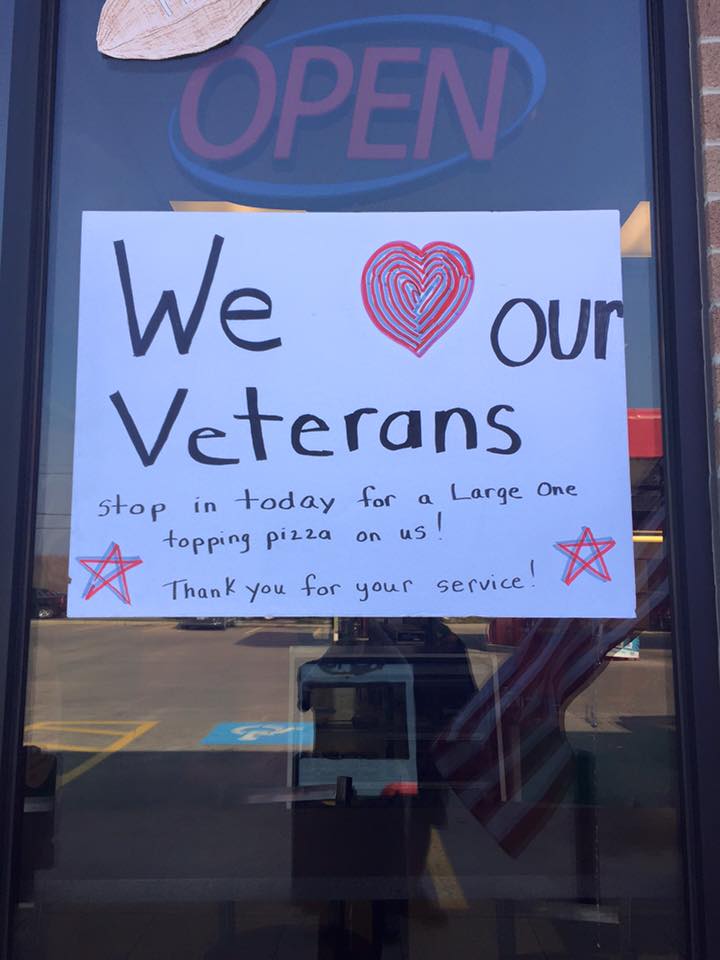 OPEN
We our
Veterans
Stop in today for a Large One
topping pizza on us!
Thank you for your service!